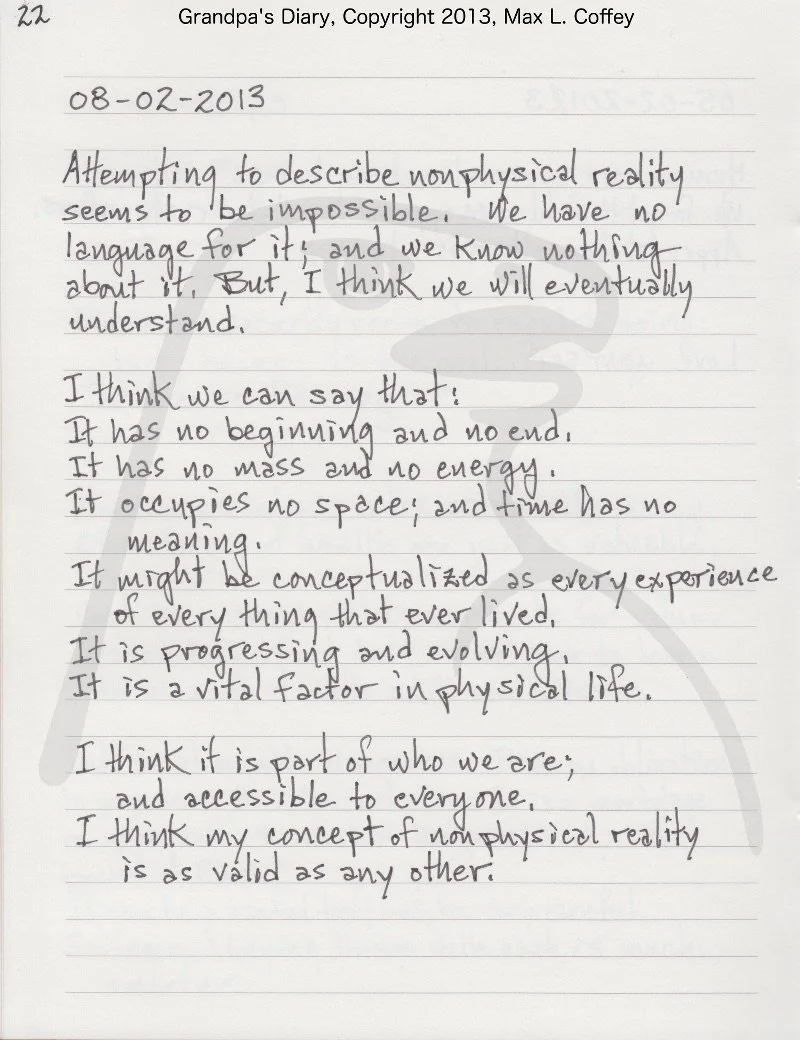 22
Grandpa's Diary, Copyright 2013, Max L. Coffey
08-02-2013
Attempting to describe nonphysical reality
seems to be impossible. We have no
language for it; and we know nothing
about it. But, I think we will eventually
understand.
I think we can say that:
It has no beginning and no end.
It has no mass and no energy.
It occupies no space; and time has no
meaning.
It might be conceptualized as every experience
of every thing that ever lived.
It is progressing and evolving.
It is a vital factor in physical life.
I think it is part of who we are;
and accessible to everyone.
I think my concept of nonphysical reality
is as valid as any other.